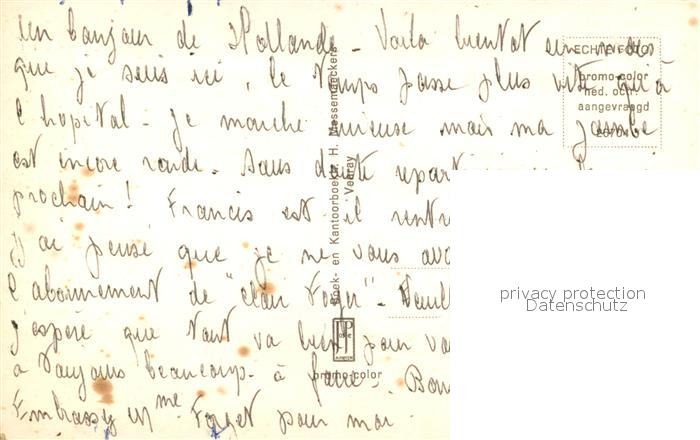 Un bonjour de Hollande - Voila bientot un mois
que je suis ici, le temps passe plus vite qu'à
l'hopital - Je marche mieuse mais ma jambe
est encore raide. Sans doute repart
prochain! Francis est il rentr
j'ai pensé que je ne vous avo
l'abonnement de "clair foyer" - Veuill
j'espère que tout va bien pour vo
a toujours beaucoup à faire - Bon
Embrassez Mme Forget pour moi
ECHTE FOTO
bromo-color
ned. octr.
aangevraagd
Boek- en Kantoorboekh. H. Messemaeckers
Venray
bromo-color
privacy protection
Datenschutz